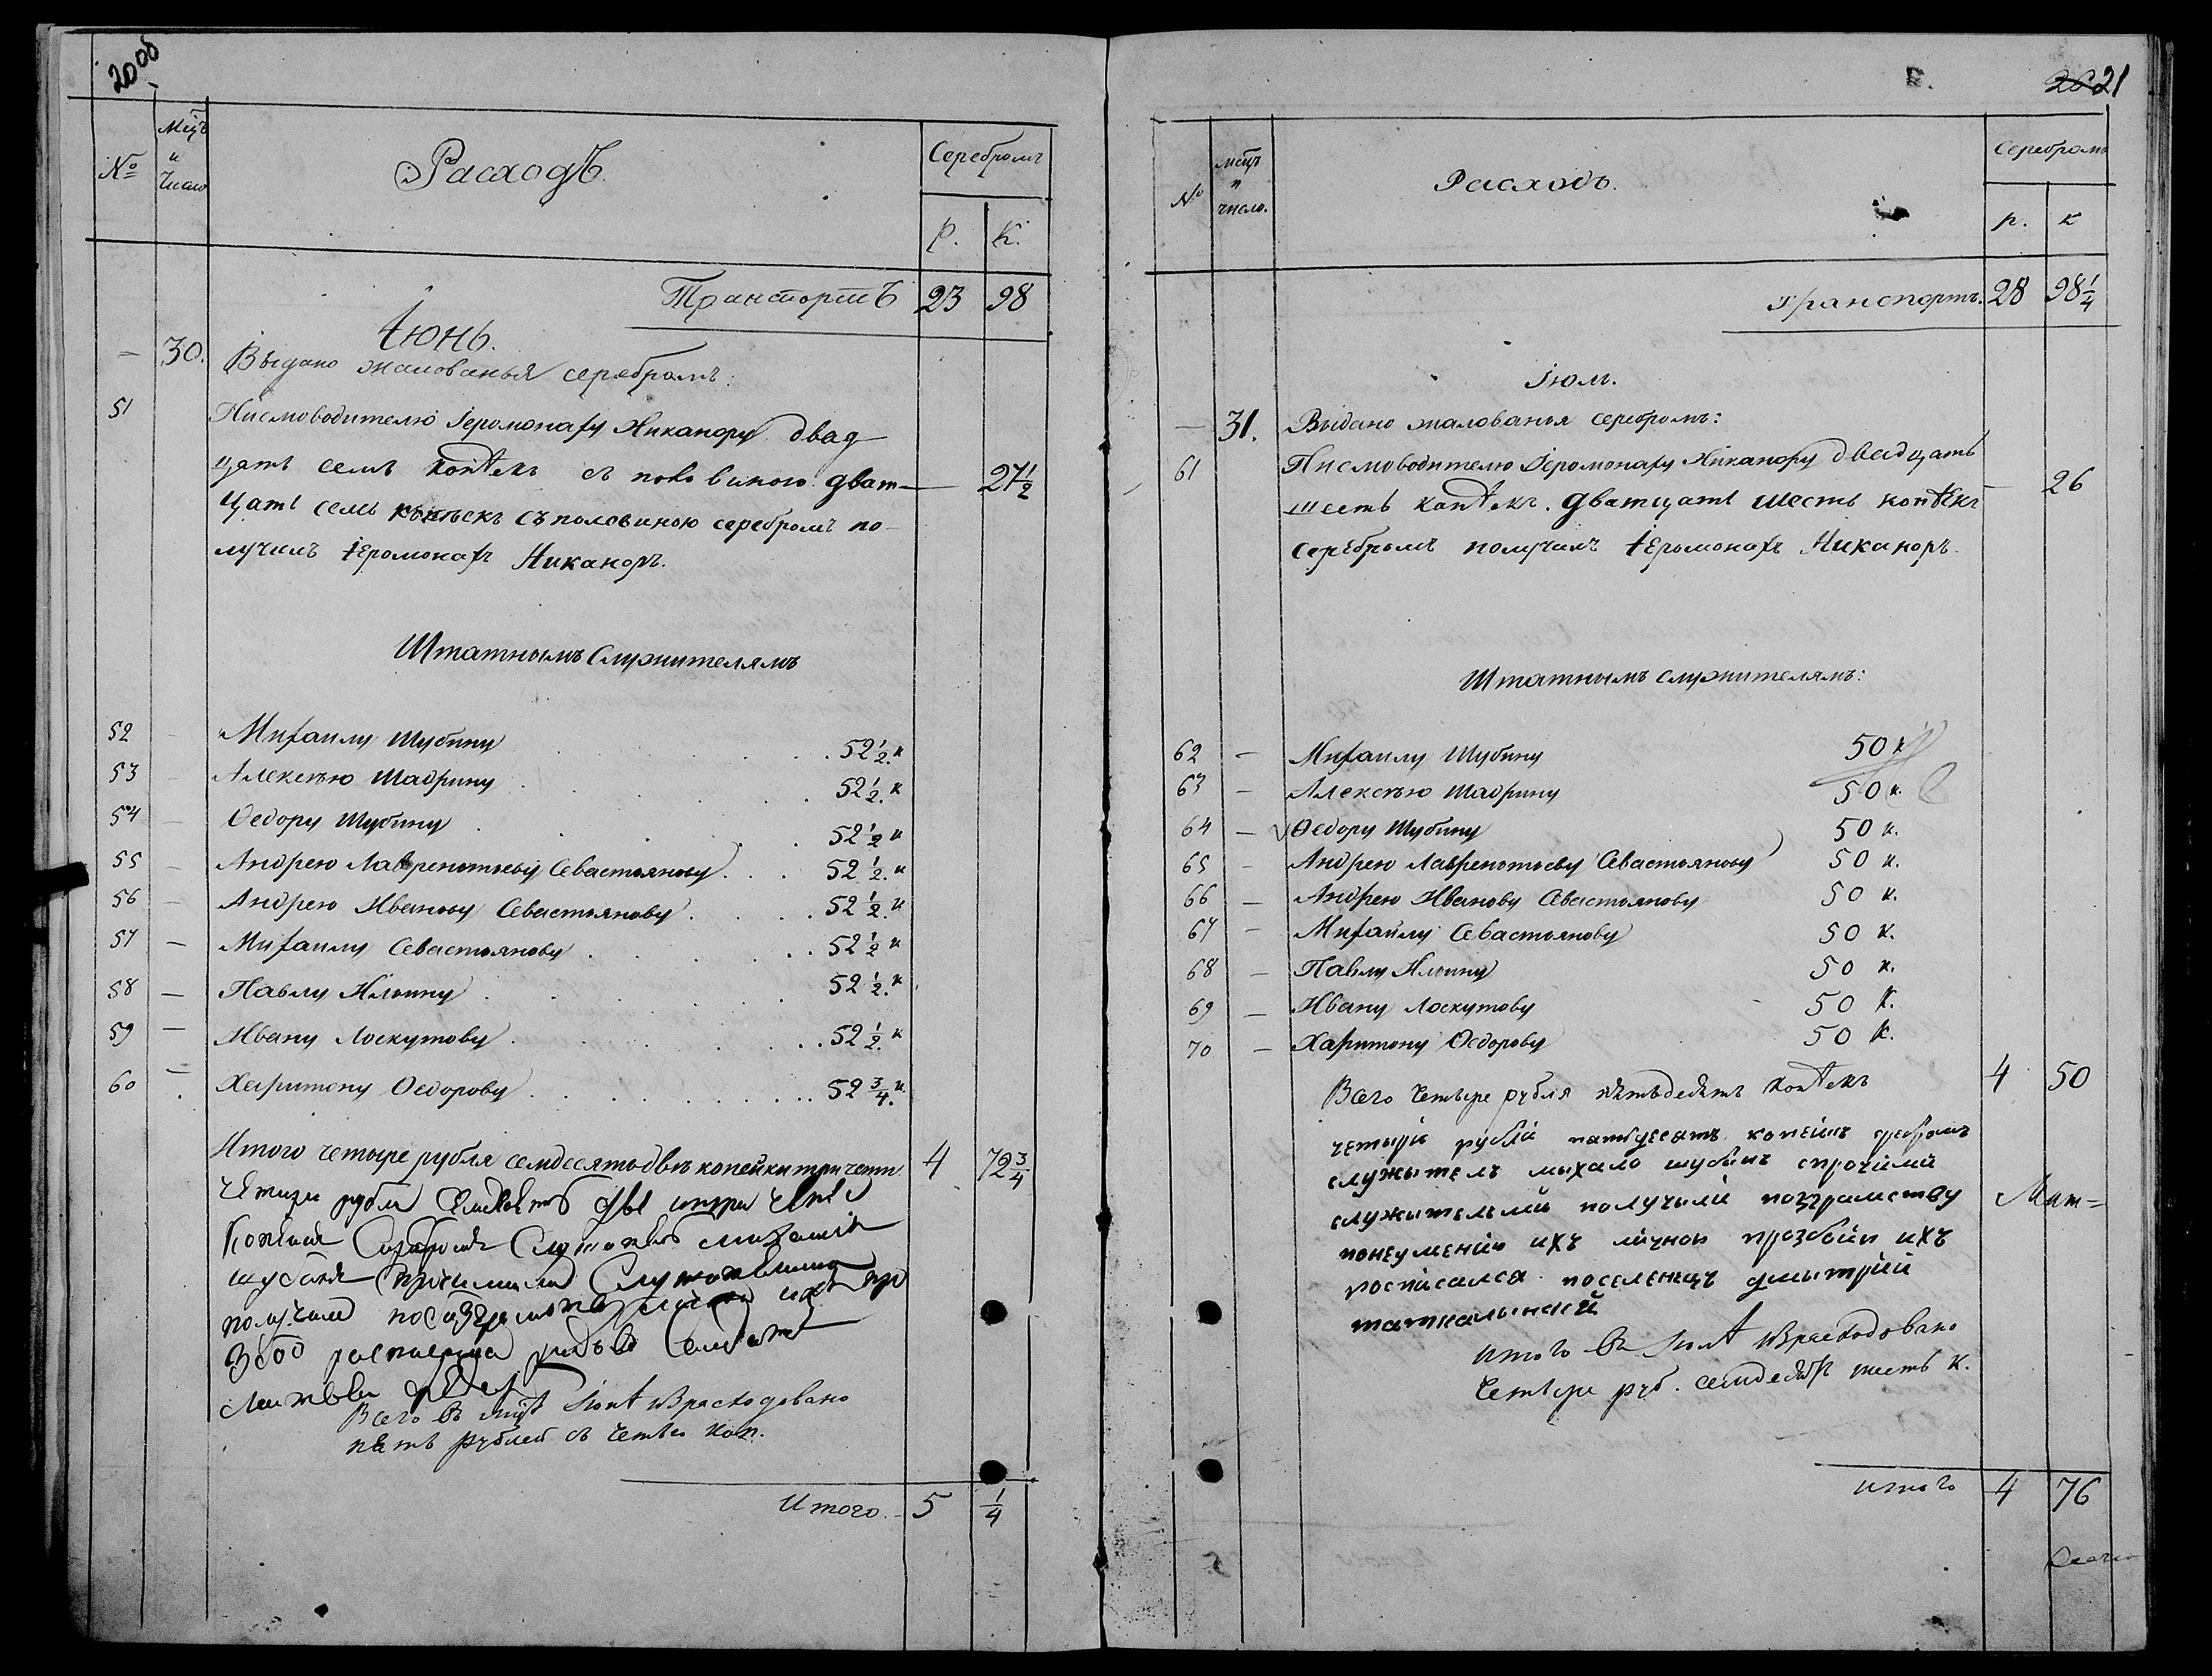 20 об
№ Мцъ и число Расходъ. Серебромъ
Р. К.
Транспортъ 23 98
Іюнь.
— 30. Выдано жалованья серебромъ:
51 Писмоводителю Іеромонаху Никанору двад
цать семь копѣекъ съ половиною. дват— 27 1/2
цать семь копѣекъ съ половиною серебромъ по-
лучилъ Іеромонахъ Никаноръ.
Штатнымъ служителямъ
52 — Михаилу Шубину . . 52 1/2 к
53 — Алексѣю Шадрину . . . 52 1/2. к
54 — Ѳедору Шубину . . . 52 1/2 к
55 — Андрею Лаврентьеву Севастьянову . . . 52 1/2. к
56 — Андрею Иванову Севастьянову . . . 52 1/2. к
57 — Михаилу Севастьянову . . . . 52 1/2 к
58 — Павлу Ильину . . . . 52 1/2. к
59 — Ивану Лоскутову . . . . 52 1/2. к
60 — Харитону Ѳедорову . . . . . . . 52 3/4. к.
Итого четыре рубля семдесятъ двѣ копейки три четв. 4 72 3/4
рубли двѣ
шубинъ
получили
Всего въ мцѣ Іюнѣ израсходовано
пять рублей съ четвер коп.
Итого. 5 1/4
20 21
№ мцъ и число. Расходъ. Серебромъ
р. к
Транспортъ. 28 98 1/4
Іюль.
— 31. Выдано жалованья серебромъ:
61 Писмоводителю Іеромонаху Никанору двадцать
шесть копѣекъ. дватцать шесть копѣекъ — 26
серебромъ получилъ Іеромонахъ Никаноръ.
Штатнымъ служителямъ:
62 — Михаилу Шубину 50 к
63 — Алексѣю Шадрину 50 к.
64 — Ѳедору Шубину 50 к.
65 — Андрею Лаврентьеву Севастьянову 50 к.
66 — Андрею Иванову Севастьянову 50 к.
67 — Михаилу Севастьянову 50 к.
68 — Павлу Ильину 50 к.
69 — Ивану Лоскутову 50 к.
70 — Харитону Ѳедорову 50 к.
Всего четыре рубля пятьдесятъ копѣекъ 4 50
четыри рубли патдесатъ копеикъ
служытель мыхало шубинъ спрочими
служытельми получыли
понеуменію ихъ личнои прозбои ихъ
росписался поселенецъ дмытрий
итого въ Іюлѣ израсходовано
четыре руб. семдесятъ шесть к.
итого 4 76